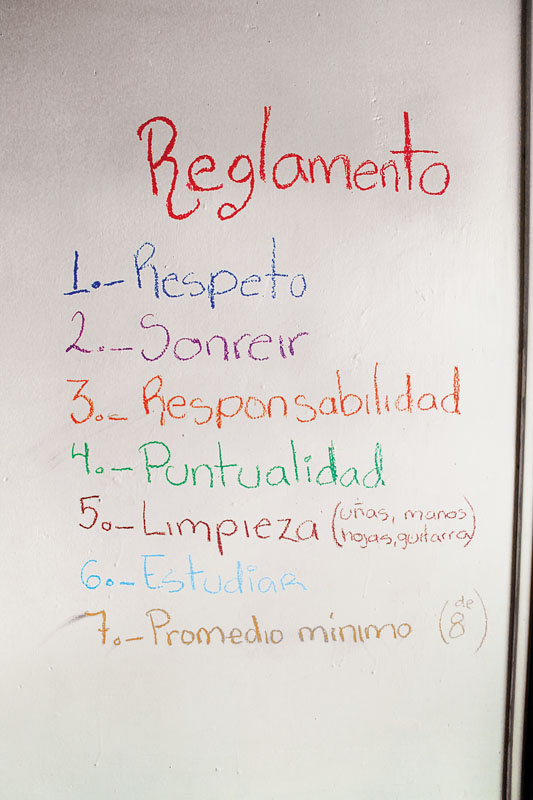 Reglamento
1.- Respeto
2.- Sonreir
3.- Responsabilidad
4.- Puntualidad
5.- Limpieza (uñas, manos
hojas, guitarra)
6.- Estudiar
7.- Promedio mínimo (de
8)